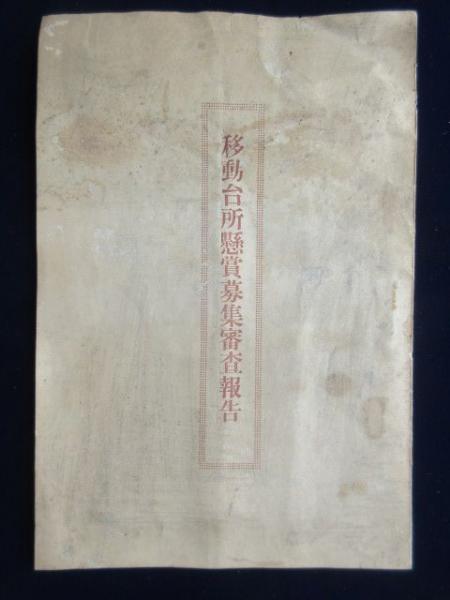 移動台所懸賞募集審査報告